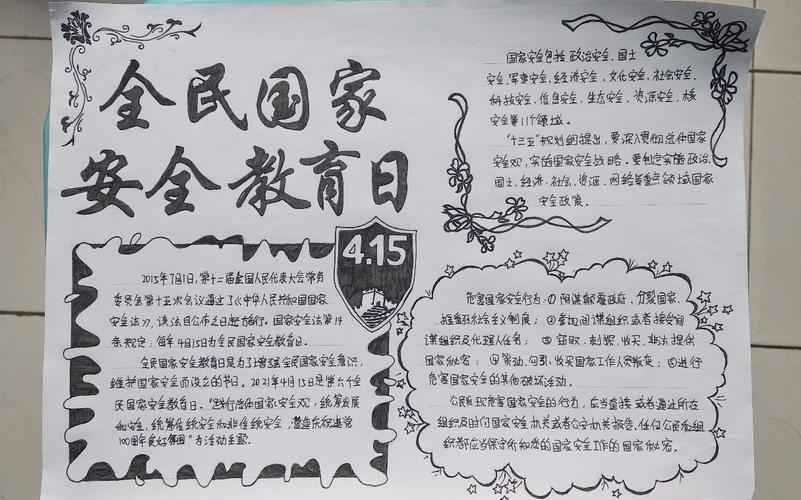 全民国家
安全教育日
4.15
2015年7月1日,第十二届全国人民代表大会常务
委员会第十五次会议通过了《中华人民共和国国家
安全法》,该法自公布之日起施行。国家安全法第14
条规定:每年4月15日为全民国家安全教育日。
全民国家安全教育日是为了增强全民国家安全意识,
维护国家安全而设立的节日。2021年4月15日是第六个全
民国家安全教育日。“践行总体国家安全观,统筹发展
和安全,统筹传统安全和非传统安全,营造庆祝建党
100周年良好氛围”为活动主题。
国家安全包括政治安全、国土
安全、军事安全、经济安全、文化安全、社会安全、
科技安全、信息安全、生态安全、资源安全、核
安全等11个领域。
“十三五”规划纲提出,要深入贯彻总体国家
安全观,实施国家安全战略。要制定实施政治、
国土、经济、社会、资源、网络等重点领域国家
安全政策。
危害国家安全行为:①阴谋颠覆政府,分裂国家、
推翻社会主义制度;②参加间谍组织或者接受间
谍组织及代理人任务;③窃取、刺探、收买、非法提供
国家秘密;④策动、勾引、收买国家工作人员叛变;⑤进行
危害国家安全的其他破坏活动。
公民发现危害国家安全的行为,应当直接或者通过所在
组织及时向国家安全机关或者公安机关报告,任何公民和组
织都应当保守所知悉的国家安全工作的国家秘密。